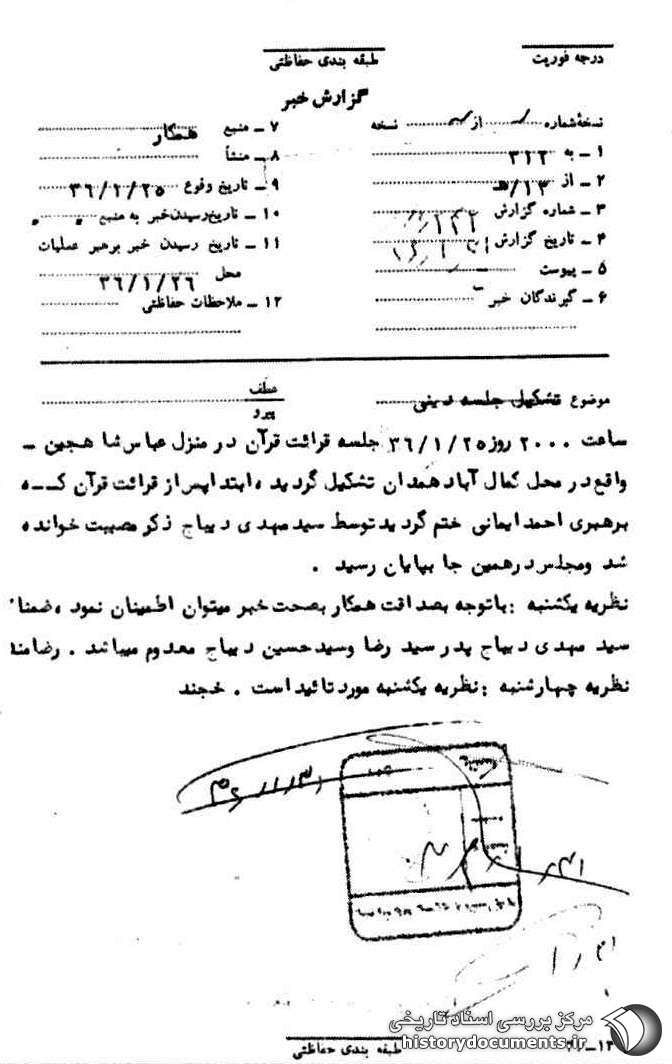 درجه فوریت
طبقه بندی حفاظتی
گزارش خبر
نسخهٔ شماره ... از ... نسخه
۱ - به ۳۱۲
۲ - از ۱۳/هـ
۳ - شماره گزارش
۴ - تاریخ گزارش
۵ - پیوست
۶ - گیرندگان خبر
۷ - منبع همکار
۸ - منشأ
۹ - تاریخ وقوع ۳۶/۱/۲۵
۱۰ - تاریخ رسیدن خبر به منبع
۱۱ - تاریخ رسیدن خبر برهبر عملیات
محل ۳۶/۱/۲۶
۱۲ - ملاحظات حفاظتی
موضوع تشکیل جلسه دینی
عطف
پیرو
ساعت ۲۰۰۰ روز ۳۶/۱/۲۵ جلسه قرائت قرآن در منزل عباس شاهجین -
واقع در محل کمال آباد همدان تشکیل گردید ، ابتدا پس از قرائت قرآن کـــه
برهبری احمد ایمانی ختم گردید توسط سید مهدی دیباج ذکر مصیبت خوانده
شد ومجلس درهمین جا بپایان رسید .
نظریه یکشنبه : باتوجه بصداقت همکار بصحت خبر میتوان اطمینان نمود ، ضمنا"
سید مهدی دیباج پدر سید رضا وسید حسین دیباج معدوم میباشد . رضامند
نظریه چهارشنبه : نظریه یکشنبه مورد تائید است . خجند
۳۶/۱/۳۱
طبقه بندی حفاظتی
مرکز بررسی اسناد تاریخی
historydocuments.ir